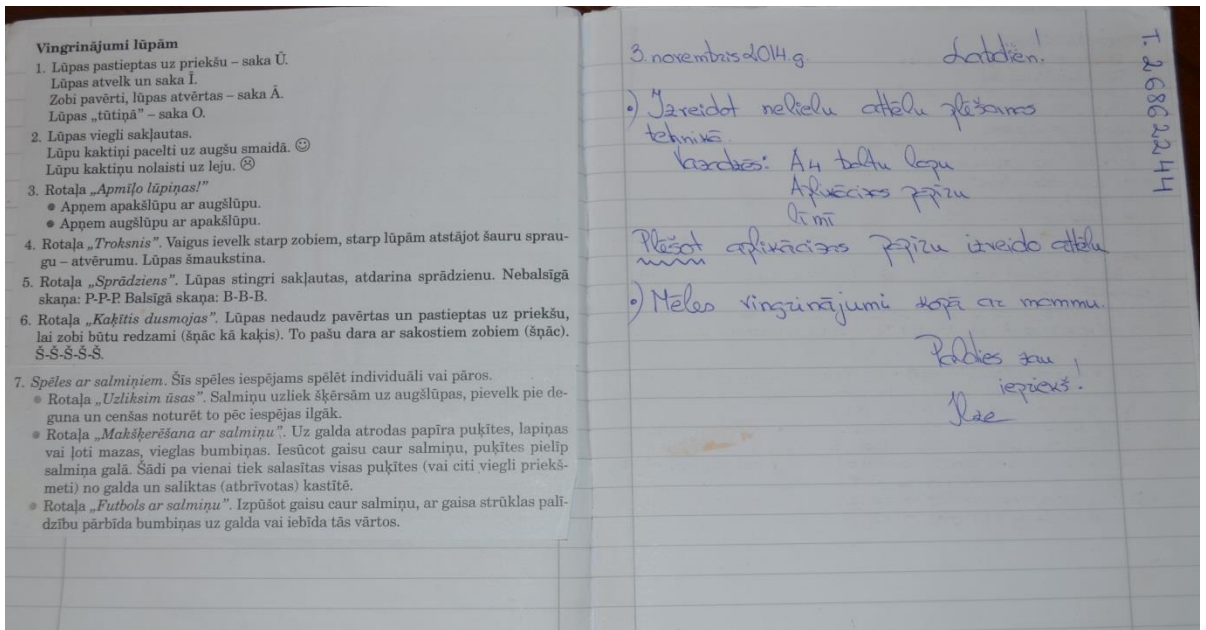 Vingrinājumi lūpām
1. Lūpas pastieptas uz priekšu – saka Ū.
Lūpas atvelk un saka Ī.
Zobi pavērti, lūpas atvērtas – saka Ā.
Lūpas „tūtiņā” – saka O.
2. Lūpas viegli sakļautas.
Lūpu kaktiņi pacelti uz augšu smaidā. ☺
Lūpu kaktiņu nolaisti uz leju. ☹
3. Rotaļa „Apmīļo lūpiņas!”
● Apņem apakšlūpu ar augšlūpu.
● Apņem augšlūpu ar apakšlūpu.
4. Rotaļa „Troksnis”. Vaigus ievelk starp zobiem, starp lūpām atstājot šauru sprau-
gu – atvērumu. Lūpas šmaukstina.
5. Rotaļa „Sprādziens”. Lūpas stingri sakļautas, atdarina sprādzienu. Nebalsīgā
skaņa: P-P-P. Balsīgā skaņa: B-B-B.
6. Rotaļa „Kaķītis dusmojas”. Lūpas nedaudz pavērtas un pastieptas uz priekšu,
lai zobi būtu redzami (šņāc kā kaķis). To pašu dara ar sakostiem zobiem (šņāc).
Š-Š-Š-Š-Š.
7. Spēles ar salmiņiem. Šīs spēles iespējams spēlēt individuāli vai pāros.
● Rotaļa „Uzliksim ūsas”. Salmiņu uzliek šķērsām uz augšlūpas, pievelk pie de-
guna un cenšas noturēt to pēc iespējas ilgāk.
● Rotaļa „Makšķerēšana ar salmiņu”. Uz galda atrodas papīra puķītes, lapiņas
vai ļoti mazas, vieglas bumbiņas. Iesūcot gaisu caur salmiņu, puķītes pielīp
salmiņa galā. Šādi pa vienai tiek salasītas visas puķītes (vai citi viegli priekš-
meti) no galda un saliktas (atbrīvotas) kastītē.
● Rotaļa „Futbols ar salmiņu”. Izpūšot gaisu caur salmiņu, ar gaisa strūklas palī-
dzību pārbīda bumbiņas uz galda vai iebīda tās vārtos.
3. novembris 2014.g. Labdien!
•) Izveidot nelielu attēlu plēšanas
tehnikā.
A4 baltu lapu
Aplikācijas papīru
līmi
Plēšot aplikācijas papīru izveido attēlu
•) Mēles vingrinājumi kopā ar mammu.
Paldies jau
iepriekš!
Ilze
T. 26862244